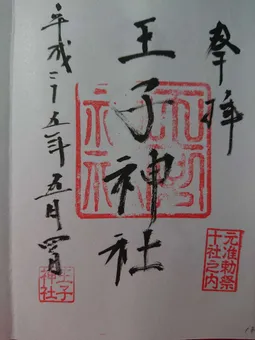 奉拝
元准勅祭
十社之内
王子神社
平成二十五年五月四日
王子
神社